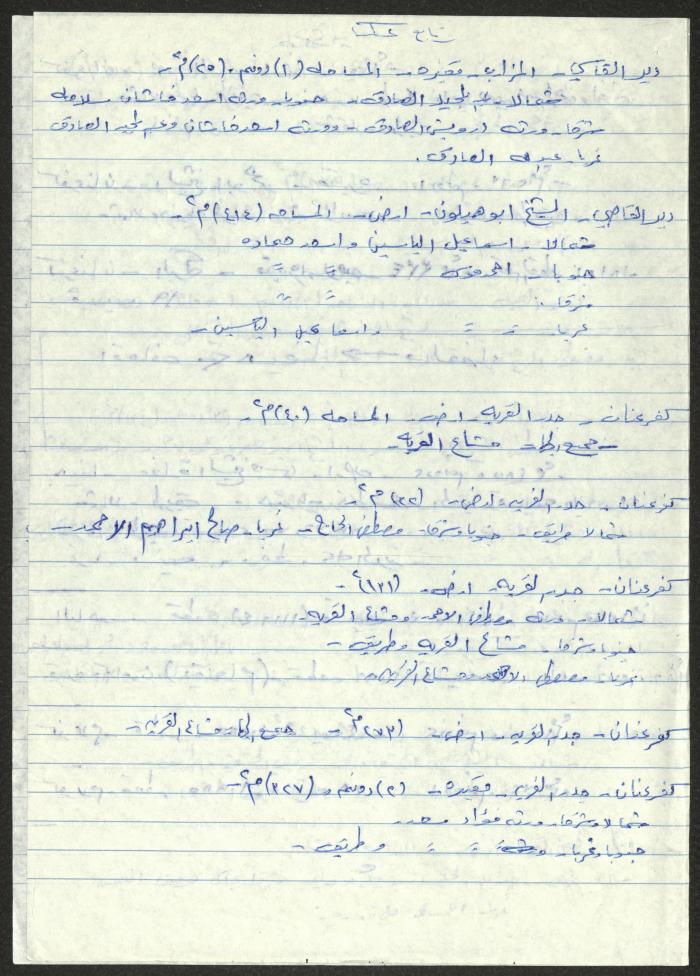 تابع عكا
دير القاسي - المزاب - مقبره - المساحه (١) دونم، (٢٥)م٢ -
شمالا - عبد المجيد الصادق - جنوبا - ورثة اسعد خاشان سلامه
شرقا - ورثة درويش الصادق - وورثة اسعد خاشان وعبد المجيد الصادق
غربا - عبد الصادق .
دير القاسي - الشيخ ابو هيلون - ارض - المساحه (٤١٤)م٢ -
شمالا - اسماعيل الياسين واسعد حماده
جنوبا - احمد = =
شرقا - = =
غربا - = = واسماعيل الياسين -
كفر عنان - جدر القريه - ارض - المساحه (٤٠)م٢ -
- جميع الجهات مشاع القريه -
كفر عنان - جدر القريه ارض - (٢٢)م٢ -
شمالا طريق - جنوبا وشرقا - مصطفى الحاج - غربا - صالح ابراهيم الاحمد -
كفر عنان - جدر القريه - ارض - (١٣١)م٢ -
شمالا - ورثة مصطفى الاحمد ومشاع القريه -
جنوبا وشرقا - مشاع القريه وطريق -
غربا - مصطفى ومشاع القريه
كفر عنان - جدر القريه - ارض - (٢٧٣)م٢ - جميع الجهات مشاع القريه -
كفر عنان - جدر القريه - مقبره - (٢) دونم و (٣٢٧)م٢ -
شمالا وشرقا - ورثة فؤاد سعد -
جنوبا وغربا - = = = وطريق -